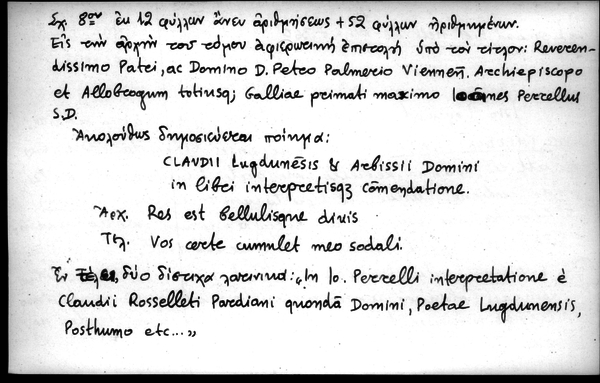 Σχ. 8ον ἐκ 12 φύλλων ἄνευ ἀριθμήσεως + 52 φύλλων ἠριθμημένων.
Εἰς τὴν ἀρχὴν τοῦ τόμου ἀφιερωτικὴ ἐπιστολὴ ὑπὸ τὸν τίτλον: Reveren-
dissimo Patri, ac Domino D. Petro Palmerio Vienneñ. Archiepiscopo
et Allobrogum totiusq; Galliae primati maximo Ioannes Perrellus
S.D.
Ἀκολούθως δημοσιεύεται ποίημα:
CLAUDII Lugdunēsis & Arbissii Domini
in libri interpretisqȝ cōmendatione.
Ἀρχ. Res est bellulisque divis
Τελ. Vos certe cumulet meo sodali.
Ἐν τέλει, δύο δίστιχα λατινικὰ: „In Io. Perrelli interpretatione è
Claudii Rosselleti Pardiani quondā Domini, Poetae Lugdunensis,
Posthumo etc...„